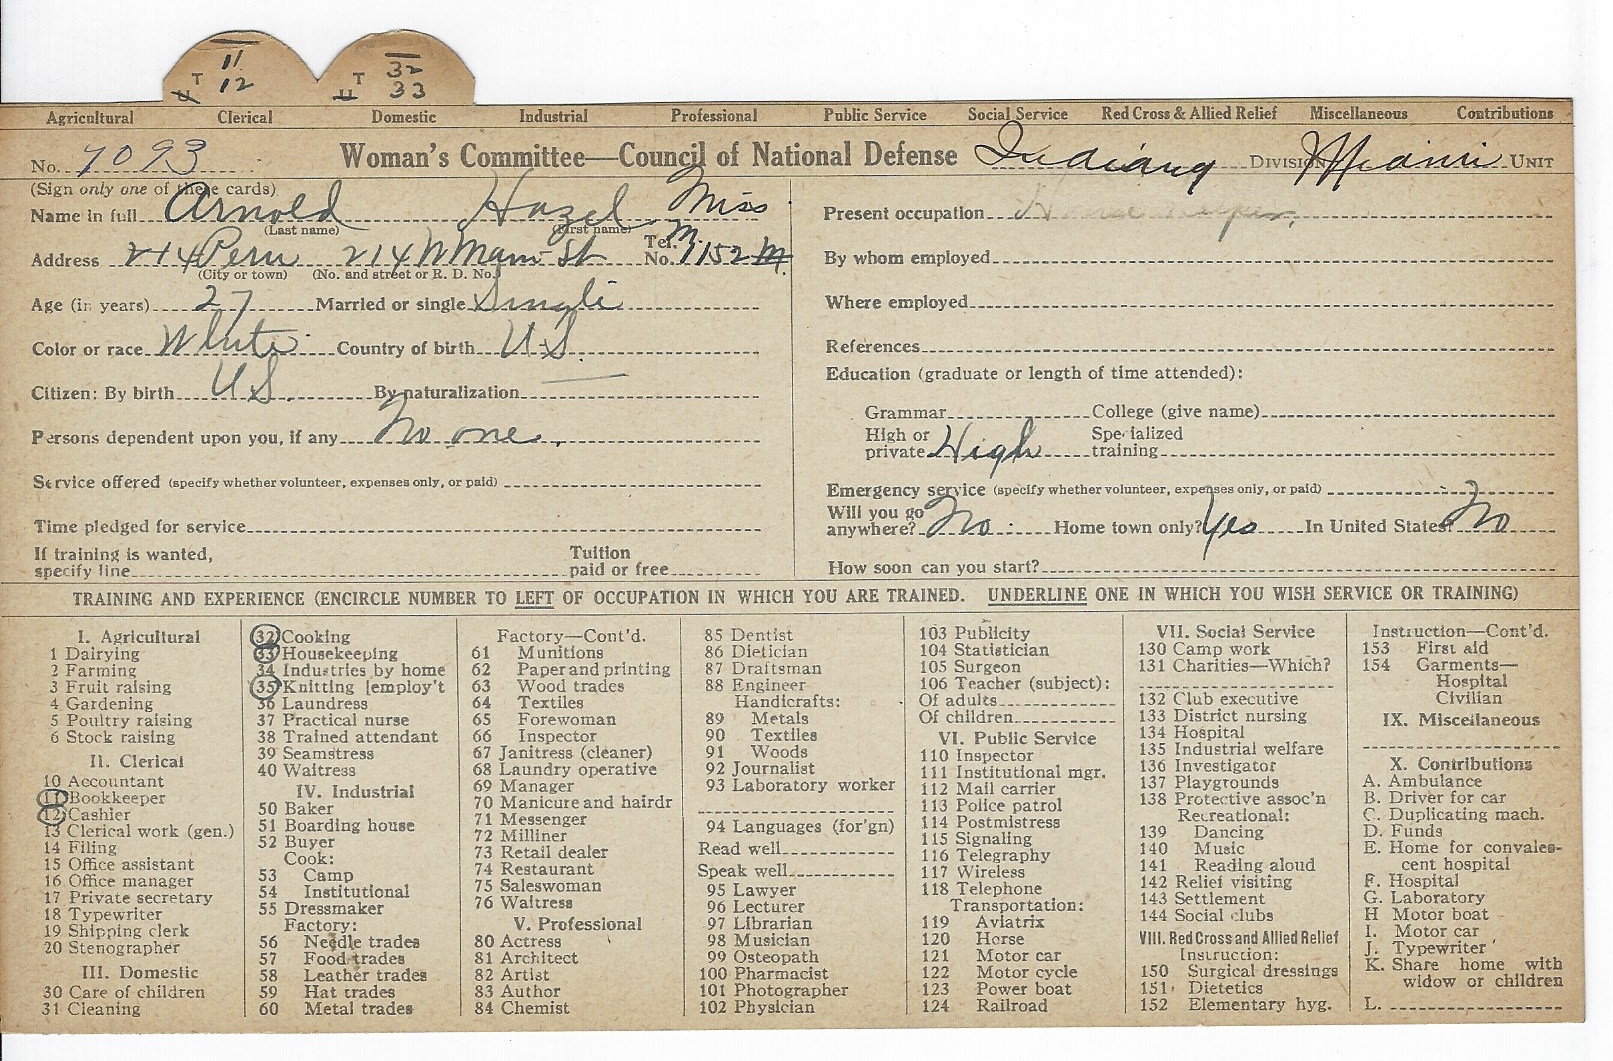 11
T 12
H
32
T 33
H
Agricultural Clerical Domestic Industrial Professional Public Service Social Service Red Cross & Allied Relief Miscellaneous Contributions
No. 7093 Woman's Committee—Council of National Defense Indiana DIVISION Miami UNIT
(Sign only one of these cards)
Name in full Arnold Hazel Miss
(Last name) (First name)
Address 214 Peru 214 W Main St Tel. No. 1152 M.
(City or town) (No. and street or R. D. No.)
Age (in years) 27 Married or single Single
Color or race White Country of birth U.S.
Citizen: By birth U.S. By naturalization —
Persons dependent upon you, if any No one.
Service offered (specify whether volunteer, expenses only, or paid)
Time pledged for service
If training is wanted, Tuition
specify line paid or free
Present occupation House helper.
By whom employed
Where employed
References
Education (graduate or length of time attended):
Grammar College (give name)
High or Specialized
private High training
Emergency service (specify whether volunteer, expenses only, or paid)
Will you go
anywhere? No. Home town only? Yes In United States? No
How soon can you start?
TRAINING AND EXPERIENCE (ENCIRCLE NUMBER TO LEFT OF OCCUPATION IN WHICH YOU ARE TRAINED. UNDERLINE ONE IN WHICH YOU WISH SERVICE OR TRAINING)
I. Agricultural
1 Dairying
2 Farming
3 Fruit raising
4 Gardening
5 Poultry raising
6 Stock raising
II. Clerical
10 Accountant
11 Bookkeeper
12 Cashier
13 Clerical work (gen.)
14 Filing
15 Office assistant
16 Office manager
17 Private secretary
18 Typewriter
19 Shipping clerk
20 Stenographer
III. Domestic
30 Care of children
31 Cleaning
32 Cooking
33 Housekeeping
34 Industries by home
35 Knitting [employ't
36 Laundress
37 Practical nurse
38 Trained attendant
39 Seamstress
40 Waitress
IV. Industrial
50 Baker
51 Boarding house
52 Buyer
Cook:
53 Camp
54 Institutional
55 Dressmaker
Factory:
56 Needle trades
57 Food trades
58 Leather trades
59 Hat trades
60 Metal trades
Factory—Cont'd.
61 Munitions
62 Paper and printing
63 Wood trades
64 Textiles
65 Forewoman
66 Inspector
67 Janitress (cleaner)
68 Laundry operative
69 Manager
70 Manicure and hairdr
71 Messenger
72 Milliner
73 Retail dealer
74 Restaurant
75 Saleswoman
76 Waitress
V. Professional
80 Actress
81 Architect
82 Artist
83 Author
84 Chemist
85 Dentist
86 Dietician
87 Draftsman
88 Engineer
Handicrafts:
89 Metals
90 Textiles
91 Woods
92 Journalist
93 Laboratory worker
94 Languages (for'gn)
Read well
Speak well
95 Lawyer
96 Lecturer
97 Librarian
98 Musician
99 Osteopath
100 Pharmacist
101 Photographer
102 Physician
103 Publicity
104 Statistician
105 Surgeon
106 Teacher (subject):
Of adults
Of children
VI. Public Service
110 Inspector
111 Institutional mgr.
112 Mail carrier
113 Police patrol
114 Postmistress
115 Signaling
116 Telegraphy
117 Wireless
118 Telephone
Transportation:
119 Aviatrix
120 Horse
121 Motor car
122 Motor cycle
123 Power boat
124 Railroad
VII. Social Service
130 Camp work
131 Charities—Which?
132 Club executive
133 District nursing
134 Hospital
135 Industrial welfare
136 Investigator
137 Playgrounds
138 Protective assoc'n
Recreational:
139 Dancing
140 Music
141 Reading aloud
142 Relief visiting
143 Settlement
144 Social clubs
VIII. Red Cross and Allied Relief
Instruction:
150 Surgical dressings
151 Dietetics
152 Elementary hyg.
Instruction—Cont'd.
153 First aid
154 Garments—
Hospital
Civilian
IX. Miscellaneous
X. Contributions
A. Ambulance
B. Driver for car
C. Duplicating mach.
D. Funds
E. Home for convales-
cent hospital
F. Hospital
G. Laboratory
H Motor boat
I. Motor car
J. Typewriter
K. Share home with
widow or children
L.